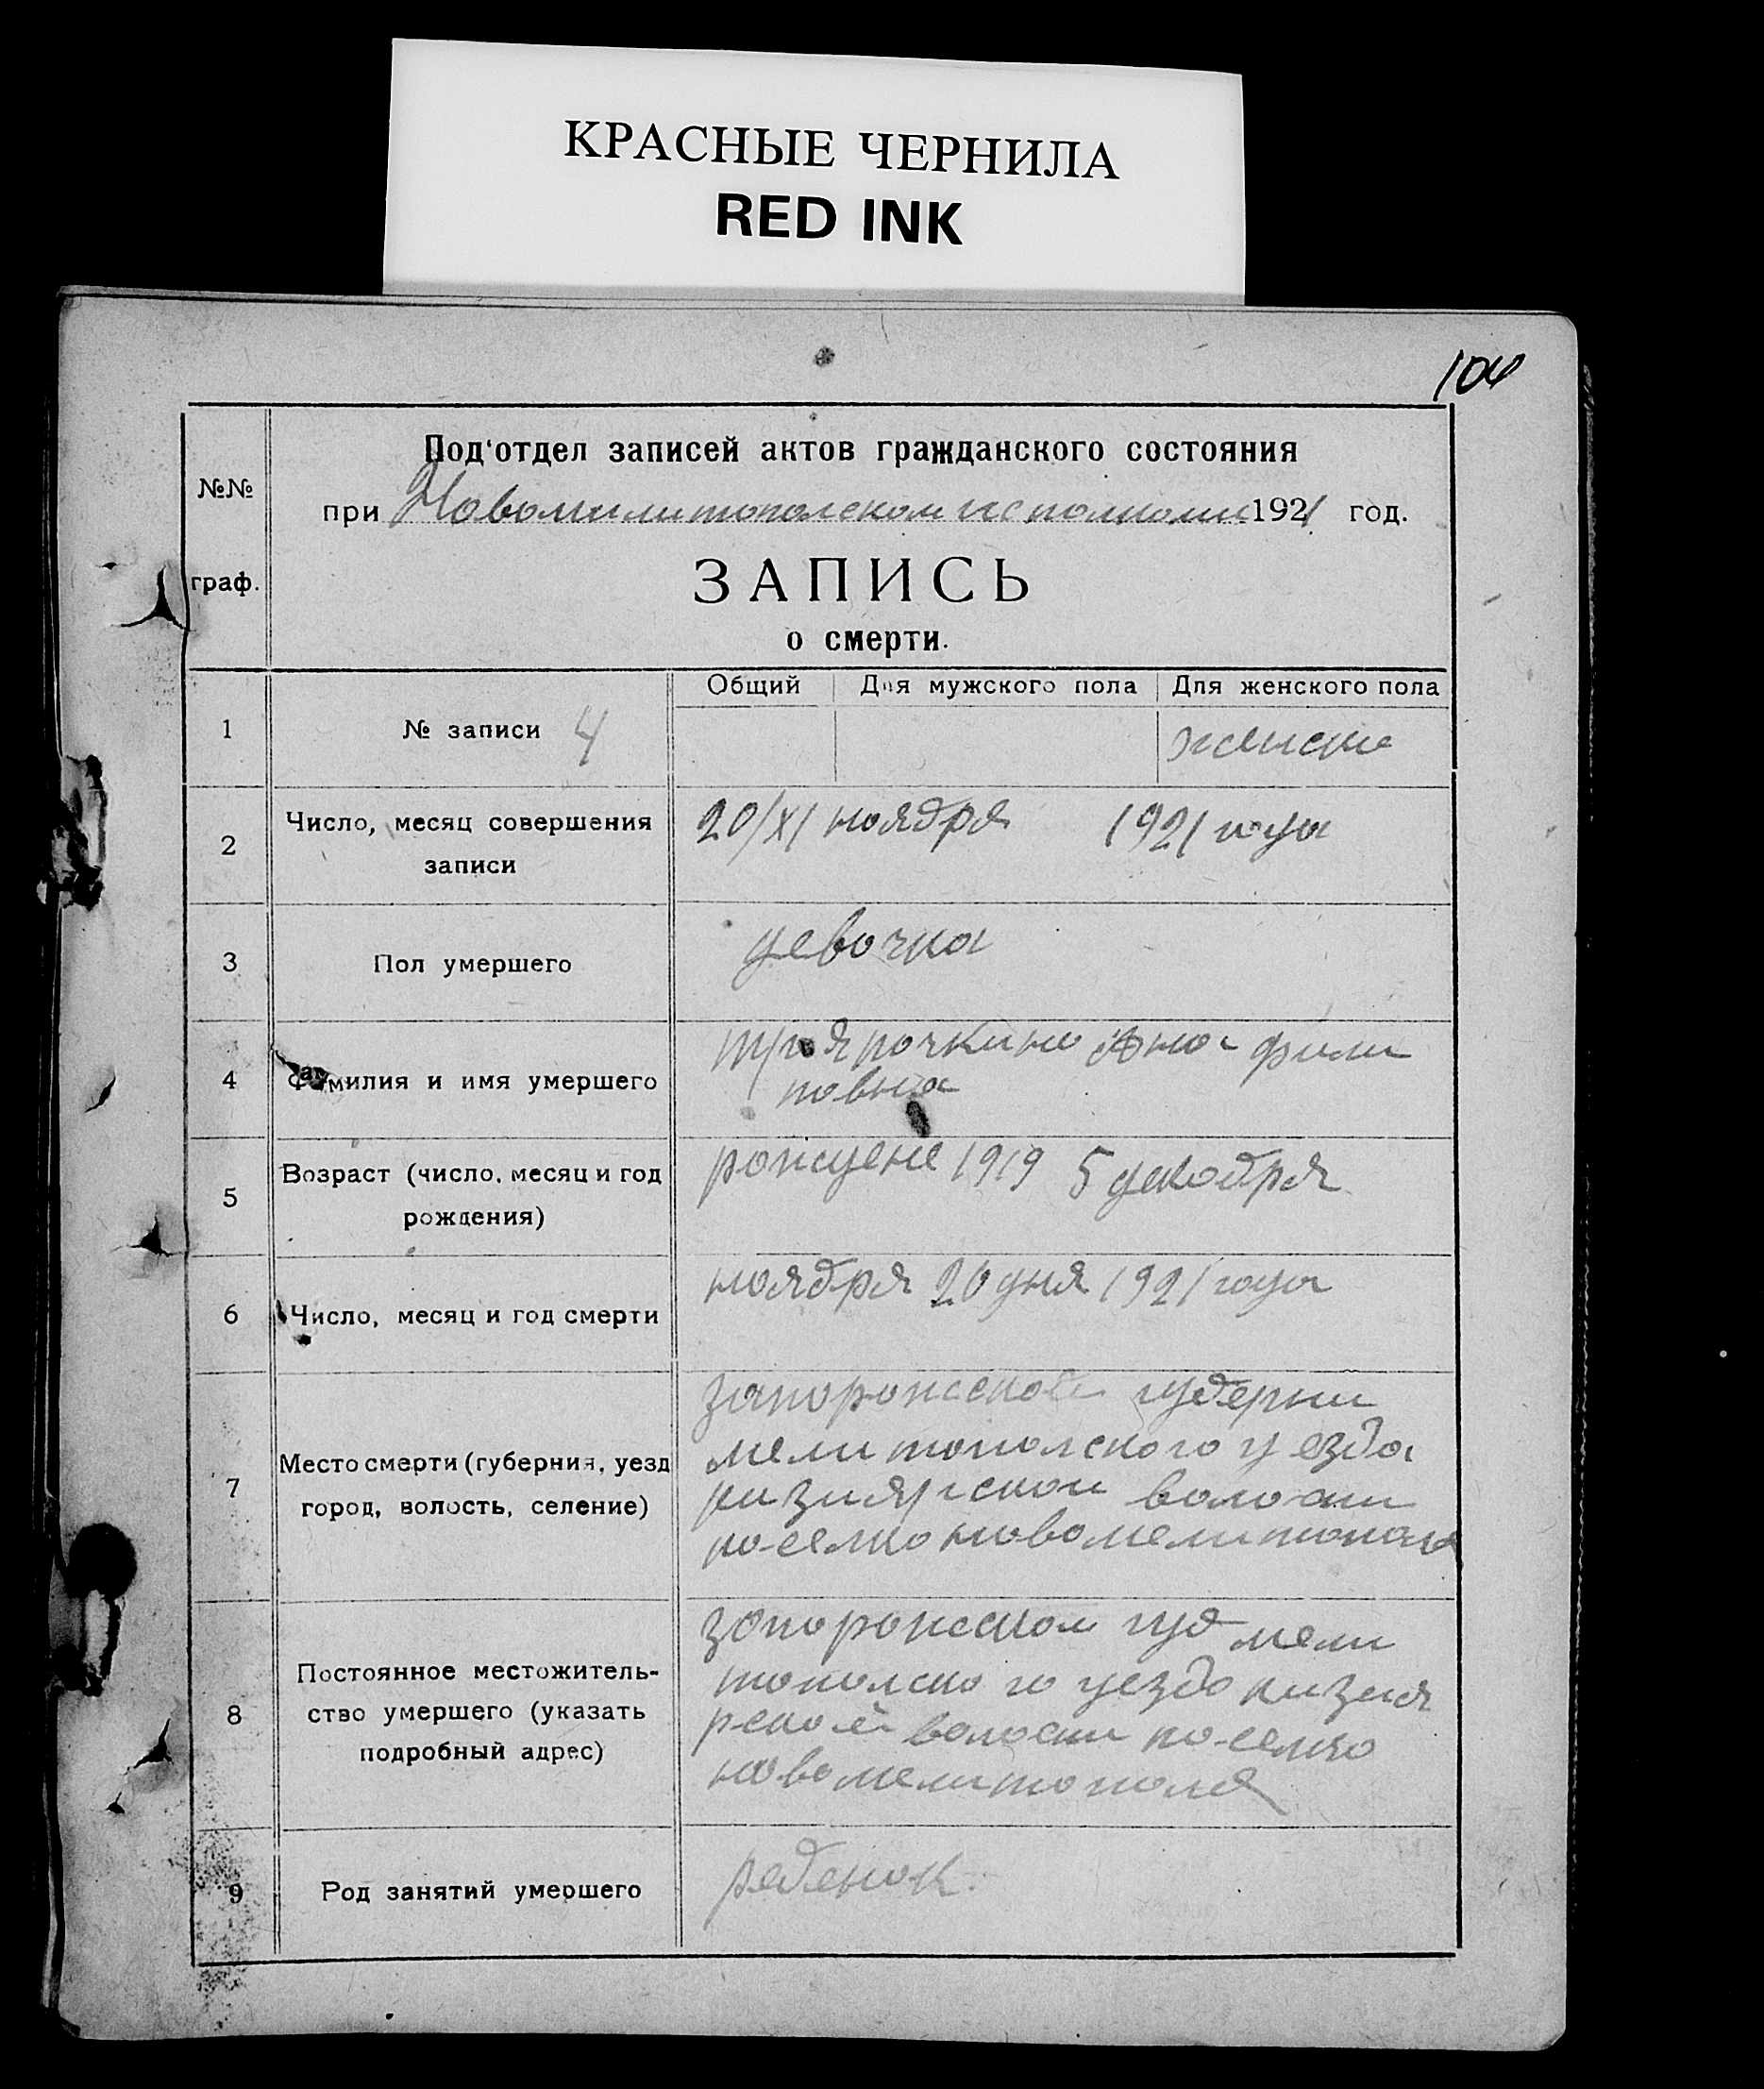 КРАСНЫЕ ЧЕРНИЛА
RED INK
104
№№
граф.
Под'отдел записей актов гражданского состояния
при Новомилитополском исполкоми 1921 год.
ЗАПИСЬ
о смерти.
Общий Для мужского пола Для женского пола
1 № записи 4 женски
2 Число, месяц совершения
записи
20/XI ноября 1921 года
3 Пол умершего девочка
4 Фамилия и имя умершего
Ана фили
повна
5 Возраст (число, месяц и год
рождения)
рождене 1919 5 декабря
6 Число, месяц и год смерти
ноября 20 дня 1921 года
7 Место смерти (губерния, уезд
город, волость, селение)
запорожской губерни
мелитополского уезда
кизиярской воло-сти
по-селко новомелитополя
8 Постоянное местожитель-
ство умершего (указать
подробный адрес)
запорожском губ мели
тополско го уезда кизия
рской волости по-селко
новомелитополя
9 Род занятий умершего ребенок.